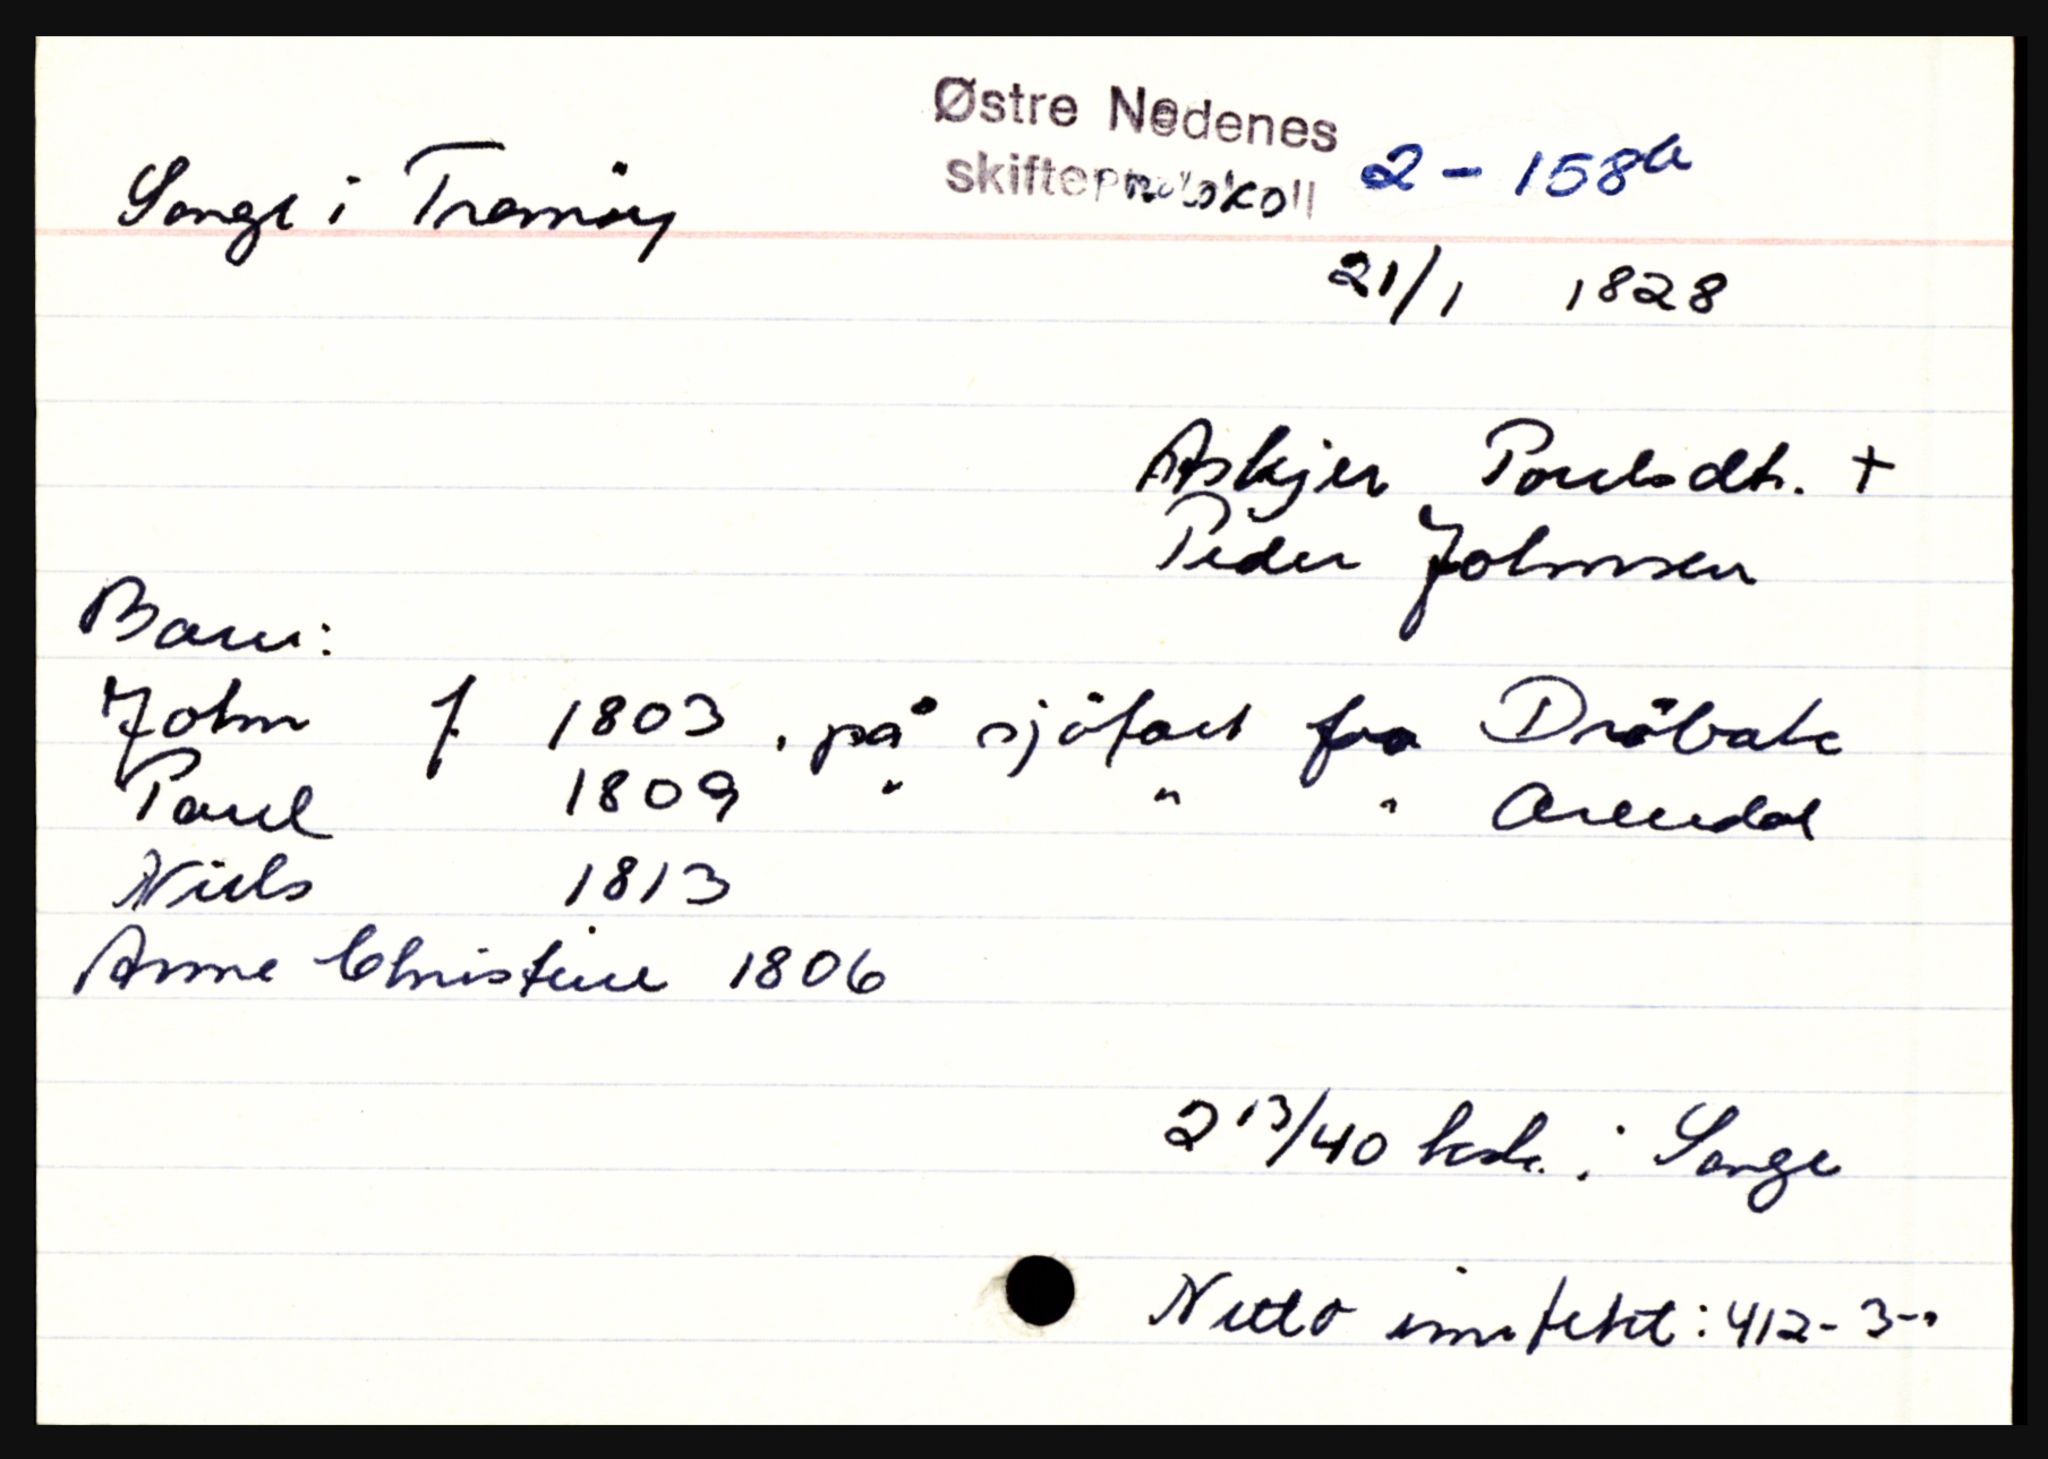 Østre Nedenes
skifteprotokoll 2 - 158b
Songe i Tromöy
21/1 1828
Askjer Poulsdtr. +
Peder Johnsen
Barn:
John f. 1803, på sjöfart fra Dröbak
Poul 1809 " " " Arendal
Niels 1813
Anne Christine 1806
2 13/40 ksk. i Songe
Netto innstekt: 412-3-"